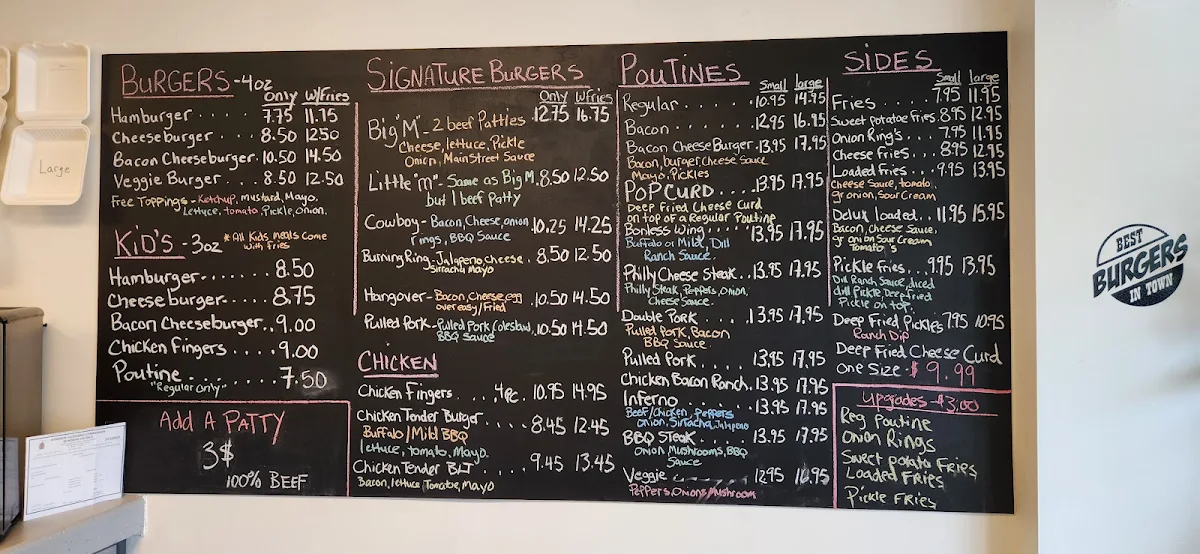 Large
BURGERS - 4oz
Only W/Fries
Hamburger ..... 7.75 11.75
Cheeseburger ... 8.50 12.50
Bacon Cheeseburger. 10.50 14.50
Veggie Burger .... 8.50 12.50
Free Toppings - Ketchup, mustard, Mayo,
Lettuce, tomato, Pickle, Onion.
KiD'S - 3oz
*All Kids meals Come
with fries
Hamburger....... 8.50
Cheeseburger.... 8.75
Bacon Cheeseburger.. 9.00
Chicken Fingers .... 9.00
Poutine ......... 7.50
"Regular Only"
Add A PATTY
3$
100% BEEF
SIGNATURE BURGERS
Only W/Fries
12.75 16.75
Big "M" - 2 beef Patties
Cheese, lettuce, Pickle
Onion, Mainstreet Sauce
Little "m" - Same as Big M 8.50 12.50
but 1 beef Patty
Cowboy - Bacon, Cheese, onion 10.25 14.25
rings, BBQ Sauce
Burning Ring - Jalapeno, Cheese, 8.50 12.50
Sirracha, Mayo
Hangover - Bacon, Cheese, egg 10.50 14.50
over easy/Fried
Pulled Pork - Pulled Pork, Coleslaw, 10.50 14.50
BBQ Sauce
CHICKEN
Chicken Fingers ... 4pc. 10.95 14.95
Chicken Tender Burger. 8.45 12.45
Buffalo / Mild BBQ
lettuce, tomato, Mayo.
Chicken Tender BLT .... 9.45 13.45
Bacon, lettuce, Tomatoe, Mayo
POUTINES
Small large
Regular ....... 10.95 14.95
Bacon ....... 12.95 16.95
Bacon CheeseBurger. 13.95 17.95
Bacon, burger, Cheese Sauce
Mayo, Pickles
POPCURD .... 13.95 17.95
Deep Fried Cheese Curd
on top of a Regular Poutine
Bonless Wing .... 13.95 17.95
Buffalo or Mild, Dill
Ranch Sauce.
Philly Cheese Steak.. 13.95 17.95
Philly Steak, Peppers, Onion,
Cheese Sauce.
Double Pork ...... 13.95 17.95
Pulled Pork, Bacon
BBQ Sauce.
Pulled Pork .... 13.95 17.95
Chicken Bacon Ranch. 13.95 17.95
Inferno ........ 13.95 17.95
Beef/Chicken, Peppers
Onion, Sirracha, Jalapeno
BBQ Steak ..... 13.95 17.95
Onion, Mushrooms, BBQ
Sauce
Veggie ....... 12.95 16.95
Peppers, Onions, Mushroom
SIDES
Small large
Fries ...... 7.95 11.95
Sweet potatoe Fries. 8.95 12.95
Onion Ring's.... 7.95 11.95
Cheese Fries... 8.95 12.95
Loaded Fries... 9.95 13.95
Cheese Sauce, tomato,
gr onion, Sour Cream
Delux loaded... 11.95 15.95
Bacon, Cheese Sauce,
gr onion Sour Cream
Tomato's
Pickle fries... 9.95 13.95
Dill Ranch Sauce, diced
dill Pickle, Deep fried
Pickle on top.
Deep Fried Pickles 7.95 10.95
Ranch Dip
Deep Fried Cheese Curd
One Size - $ 9.99
Upgrades - $3.00
Reg Poutine
Onion Rings
Sweet potato Fries
Loaded Fries
Pickle Fries
BEST
BURGERS
IN TOWN